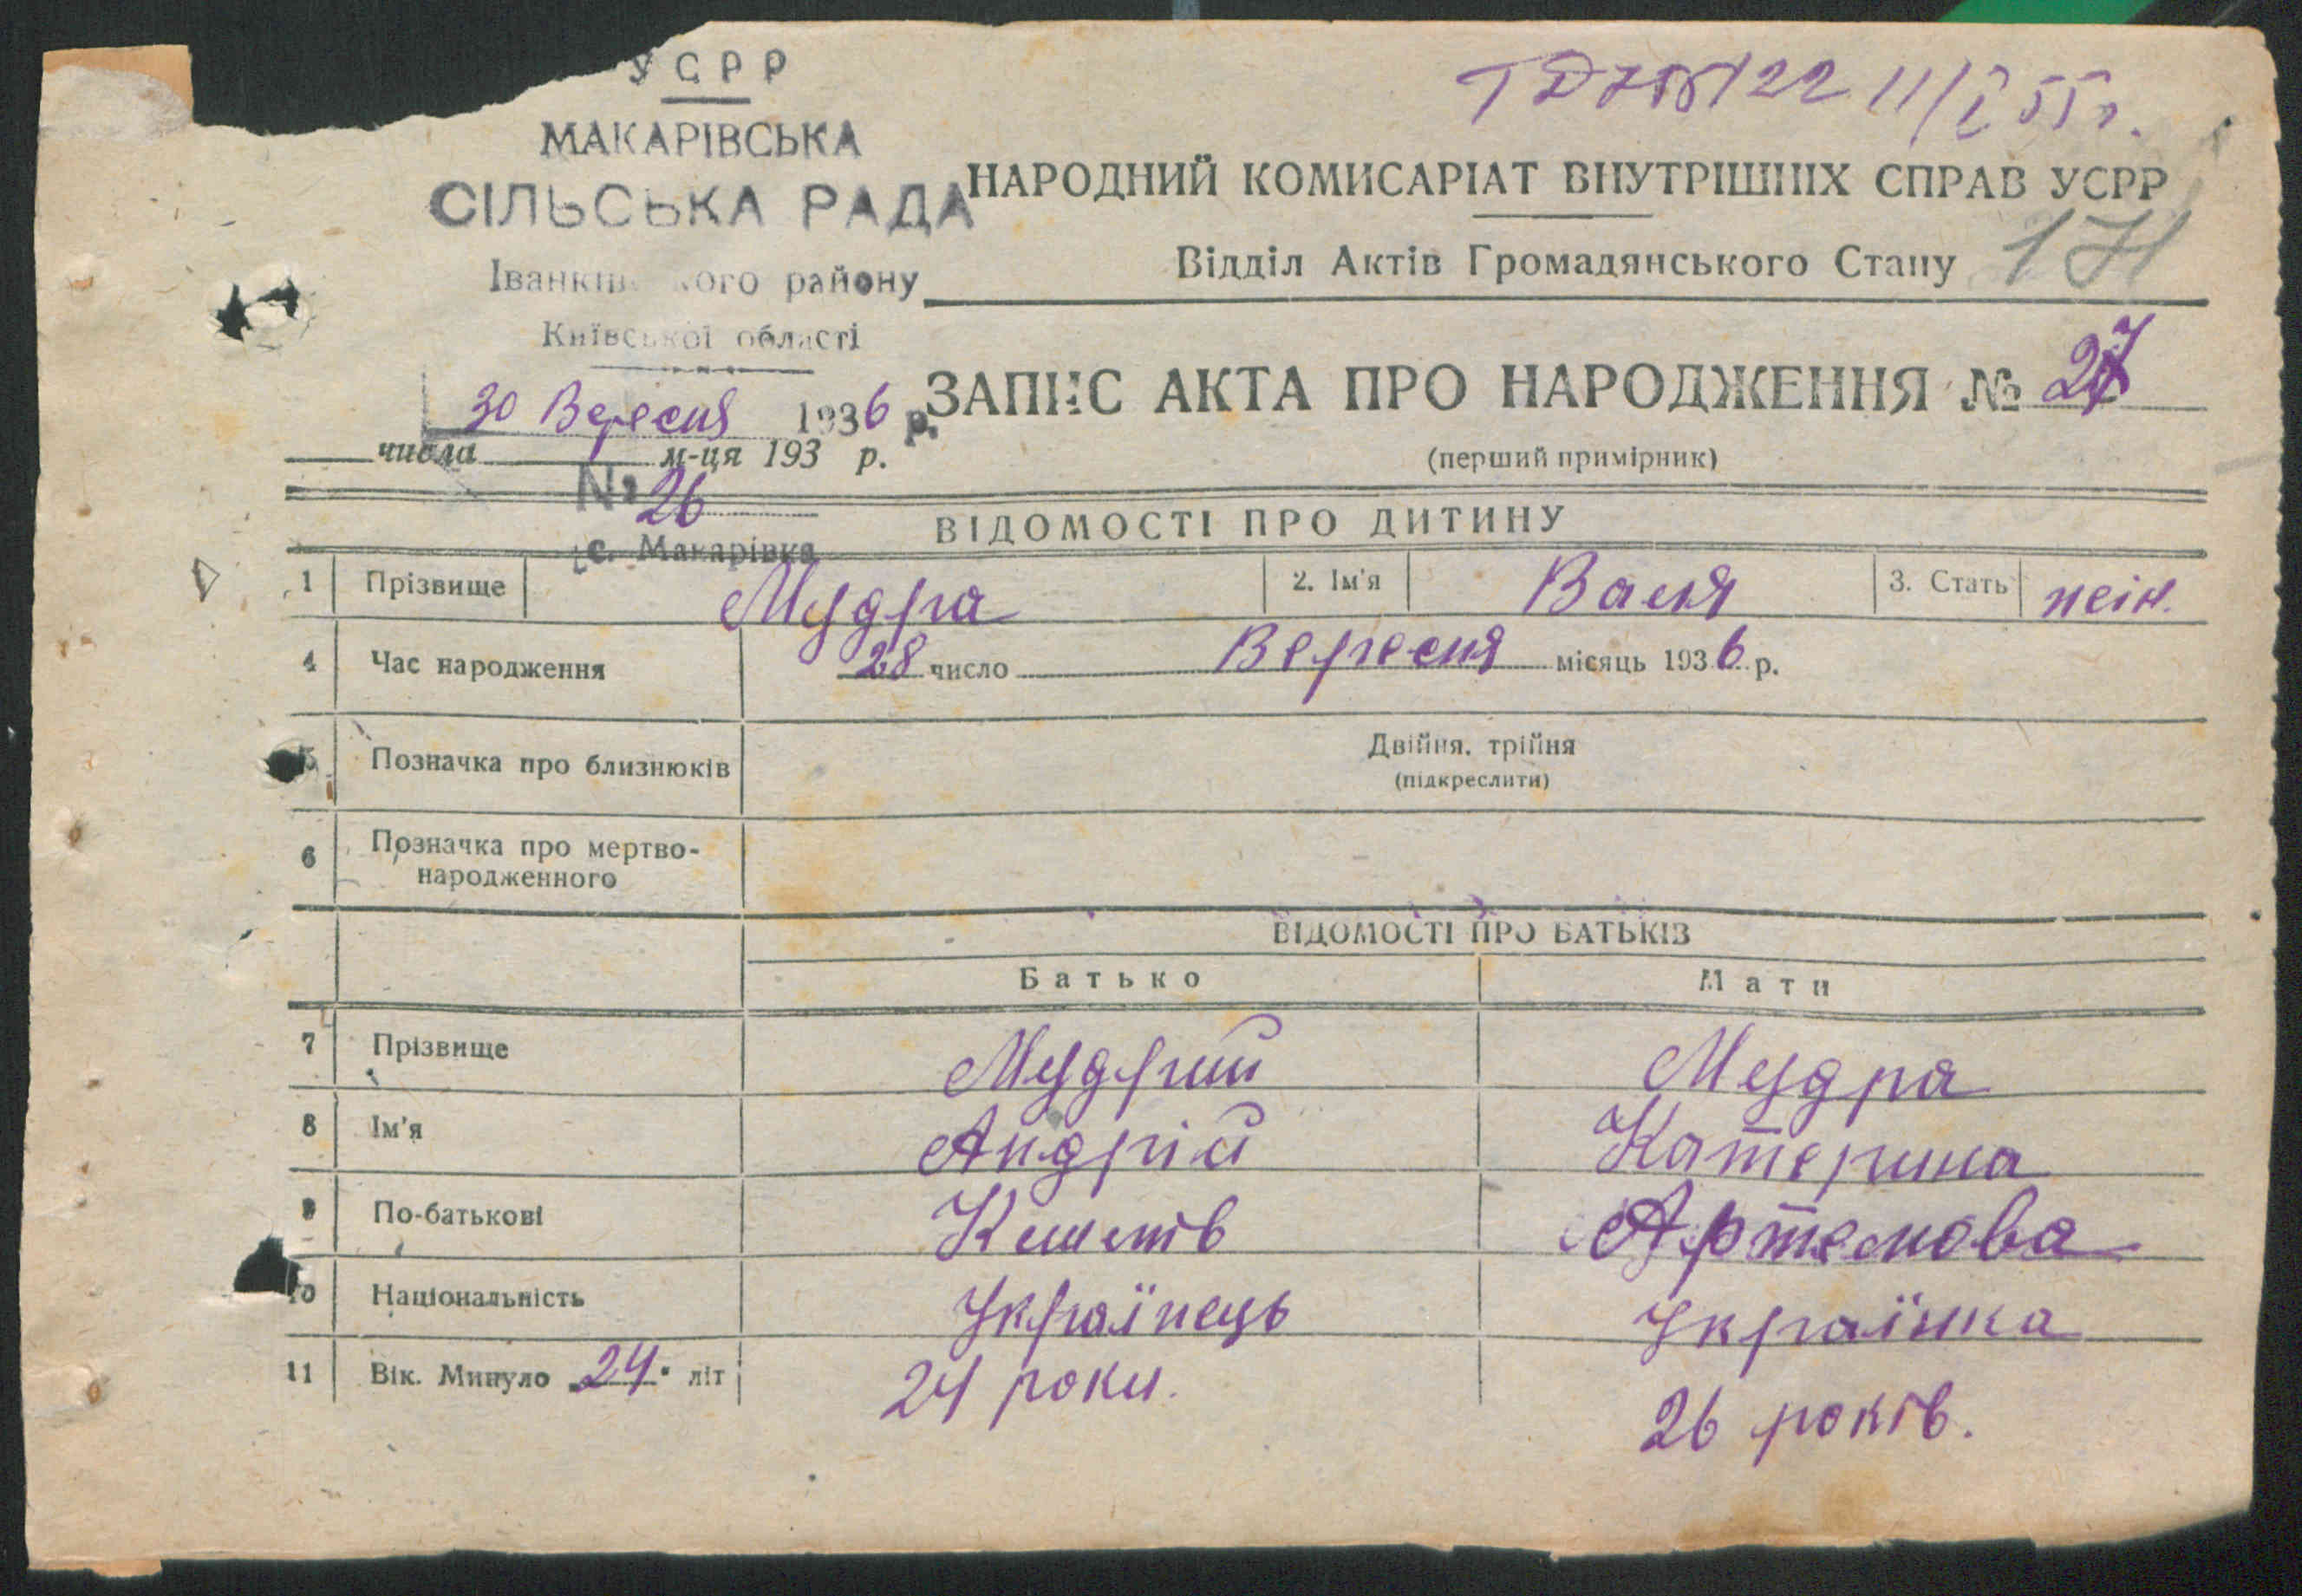 УСРР
МАКАРІВСЬКА
СІЛЬСЬКА РАДА
Іванківського району
Київської області
30 Вересня 1936 р.
числа м-ця 193 р.
№ 26
с. Макарівка
11/І 55 г.
НАРОДНИЙ КОМИСАРІАТ ВНУТРІШНІХ СПРАВ УСРР
Відділ Актів Громадянського Стану
ЗАПИС АКТА ПРО НАРОДЖЕННЯ № 27
(перший примірник)
ВІДОМОСТІ ПРО ДИТИНУ
1 Прізвище Мудра 2. Ім'я Валя 3. Стать жін.
4 Час народження 28 число Вересня місяць 1936 р.
5 Позначка про близнюків Двійня, трійня
(підкреслити)
6 Позначка про мертво-
народженного
ВІДОМОСТІ ПРО БАТЬКІВ
Батько Мати
7 Прізвище Мудрий Мудра
8 Ім'я Андрій Катерина
9 По-батькові Артемова
10 Національність Українець Українка
11 Вік. Минуло 24 літ 24 роки. 26 років.